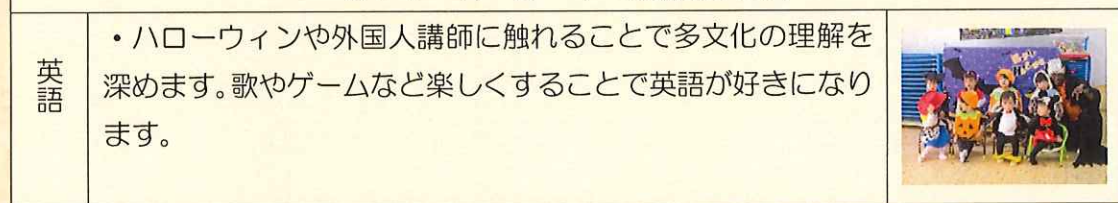 英語
・ハローウィンや外国人講師に触れることで多文化の理解を
深めます。歌やゲームなど楽しくすることで英語が好きになり
ます。